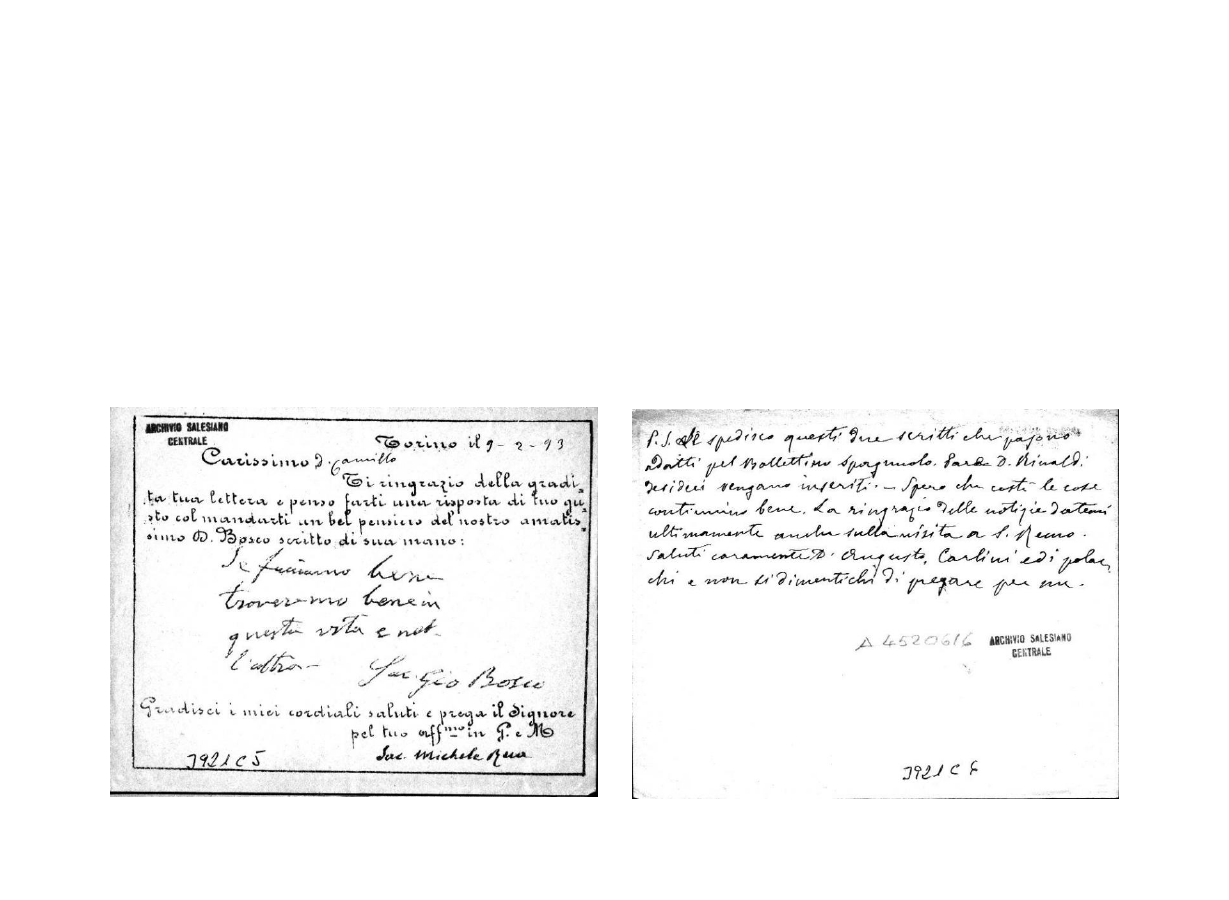 ARCHIVIO SALESIANO
CENTRALE
Torino il 9-2-93
Carissimo D. Camillo
Ti ringrazio della gradi-
ta tua lettera e penso farti una risposta di tuo gu-
sto col mandarti un bel pensiero del nostro amatis-
simo D. Bosco scritto di sua mano:
Se facciamo bene
troveremo bene in
questa vita e nel-
l'altra
Sac Gio Bosco
Gradisci i miei cordiali saluti e prega il Signore
pel tuo aff.mo in G. e M
Sac. Michele Rua
3921 C 5
P.S. Le spedisco questi due scritti che pajono
adatti pel Bollettino Spagnuolo. D. Rinaldi
desideri vengano inseriti. - Spero che costì le cose
continuino bene. La ringrazio delle notizie datemi
ultimamente anche sulla visita a S. Remo.
Saluti caramente D. Augusto, Carlini ed i polac-
chi e non si dimentichi di pregare per me.
A 4520616
ARCHIVIO SALESIANO
CENTRALE
3921 C 6